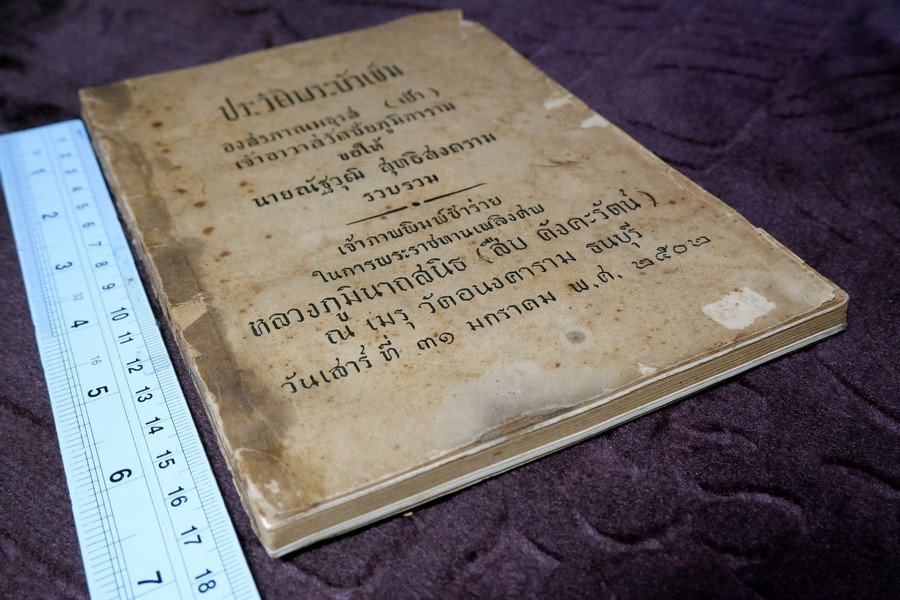 ประวัติพระบัวเข็ม
องสรภาณมธุรส (เบ๊า)
เจ้าอาวาสวัดชัยภูมิการาม
ขอให้
นายณัฐวุฒิ สุทธิสงคราม
รวบรวม
เจ้าภาพพิมพ์ชำร่วย
ในการพระราชทานเพลิงศพ
หลวงภูมินาถสนิธ (สืบ ดังคะรัตน์)
ณ เมรุ วัดอนงคาราม ธนบุรี
วันเสาร์ ที่ ๓๑ มกราคม พ.ศ. ๒๕๐๒
1
2
3
4
5
6
7
32
16
5
6
7
8
9
10
11
12
13
14
15
16
17
18